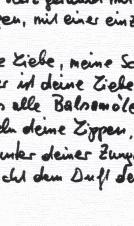 gen, mit einer einz
e Liebe, meine Sc
er ist deine Liebe
s alle Balsamöle
eln deine Lippen,
unter deiner Zung
cht dem Duft de